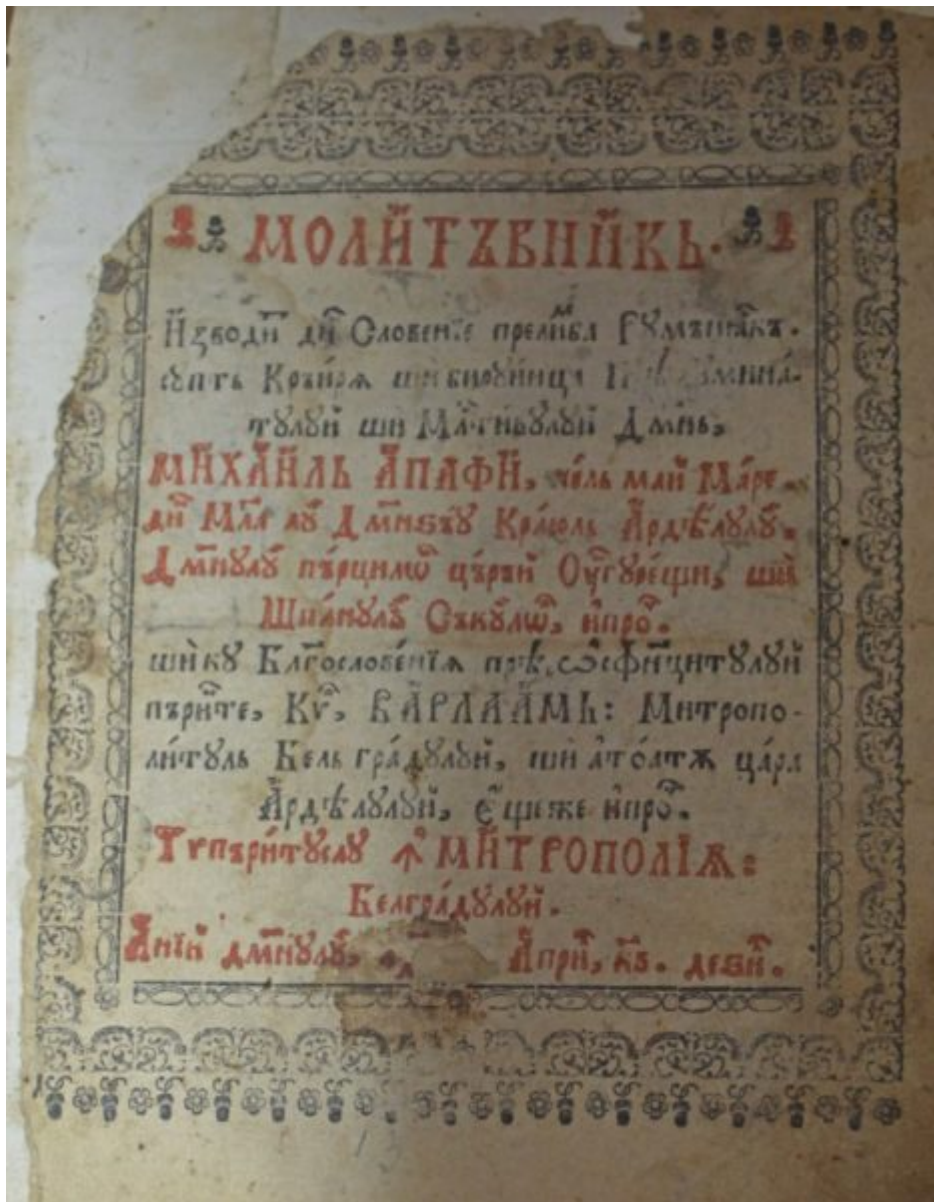 МОЛИ́ТЪВНИ́КЬ.
И҆зводи҃т ди҃н Словенїе прели́мба Рꙋмѫнѣ́скъ.
сꙋпть Кръїрѧ ши бирꙋи́нца
тꙋлꙋй ши Мл҃тивꙋлꙋй Дм҃нь,
МИХАИ́ЛЬ А҆ПАФИ́, че́ль май Ма́ре.
ди҃н Мл҃а лꙋ Дм҃неѕъꙋ Кра́юль А҆рдѣ́лꙋлꙋ҃.
Дм҃нꙋлꙋ пъ́рцилѡ҃р църъ́й Оу҆҃гꙋре́щи, ши
Шпа́нꙋлꙋ҃ Съкꙋ́лѡ҃, и҆про҃ч.
ши кꙋ Бл҃гослове́нїѧ прѣ ѡ҆сфи҃нцитꙋлꙋй
пъри́нте, Кѵ҃р, ВАРЛАА́МЬ: Митропо-
ли́тꙋль Бель гра́дꙋлꙋй, ши а҆то́атѫ ца́ра
А҆рдѣ́лꙋлꙋй, є҆́щеже и҆про҃ч.
Тѵпъри́тꙋсаꙋ ꙟ҆ МИТРОПОЛІѦ:
Белгра́дꙋлꙋй.
А҆́нїй дм҃нꙋлꙋ҃, А҆при҃л, к҃ѕ. деѕи҃ле.